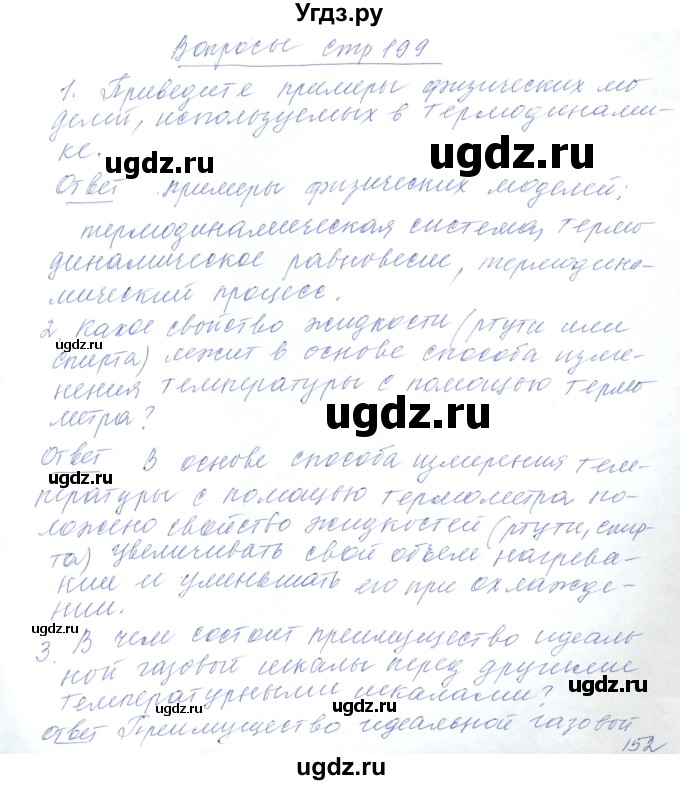 Угдз.ру
Вопросы стр 199
1. Приведите примеры физических мо
делей, используемых в термодинами-
ке.
Ответ примеры физических моделей:
термодинамическая система, термо
динамическое равновесие, термодина-
мический процесс.
2 Какое свойство жидкости (ртути или
спирта) лежит в основе способа изме-
нения температуры с помощью термо
метра?
Ответ В основе способа измерения тем-
пературы с помощью термометра по-
ложено свойство жидкостей (ртути, спир-
та) увеличивать свой объем нагрева-
нии и уменьшать его при охлажде-
нии.
3. В чем состоит преимущество идеаль
ной газовой шкалы перед другими
температурными шкалами?
Ответ Преимущество идеальной газовой
152
ugdz.ru
ugdz.ru
ugdz.ru
ugdz.ru
ugdz.ru
ugdz.ru
ugdz.ru
ugdz.ru
ugdz.ru
ugdz.ru
ugdz.ru